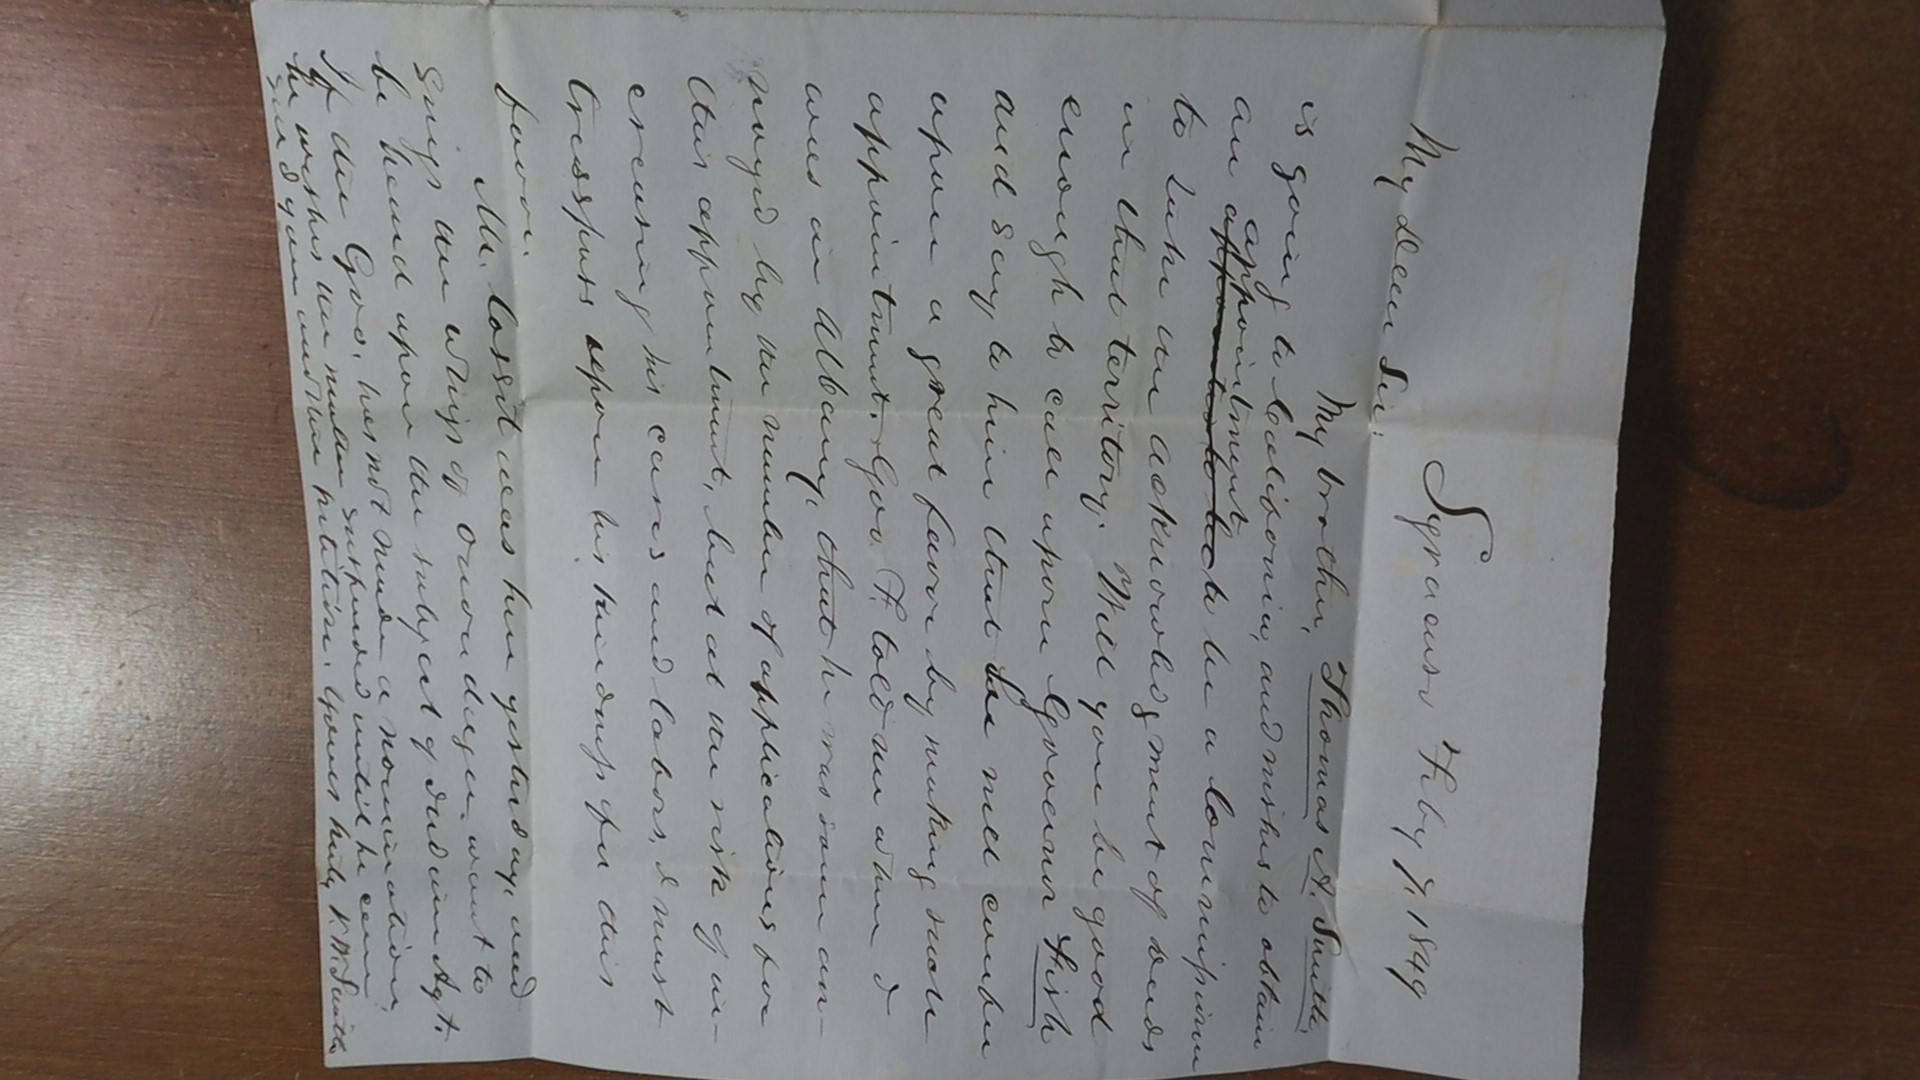 Syracuse Feby 7, 1849
My Dear Sir:
My brother, Thomas A. Smith,
is going to California, and wishes to obtain
an appointment
to be a Commissioner
to take the acknowledgment of deeds
in that territory. Will you be good
enough to call upon Governor Fish
and say to him that he will confer
upon a great favor by making such
appointment. Gov. F. told me when I
was in Albany, that he was some an-
noyed by the number of applications for
this appointment, but at the risk of in-
creasing his cares and labors, I must
trespass upon his kindness for this
favor.
Mr. Cossit was here yesterday, and
says the Whigs of Onondaga want to
be heard upon the subject of Agt.
If the Gov. has not made a nomination,
he wishes the matter suspended until he can
send you another petition. Yours truly, V. W. Smith